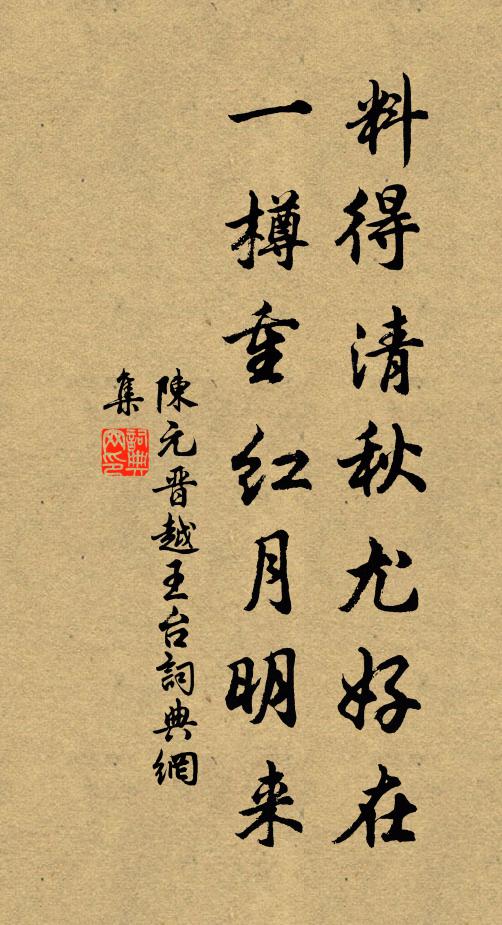 料得清秋尤好在
一樽重红月明来
陳元晋越王台詞典網
集
詞典网印